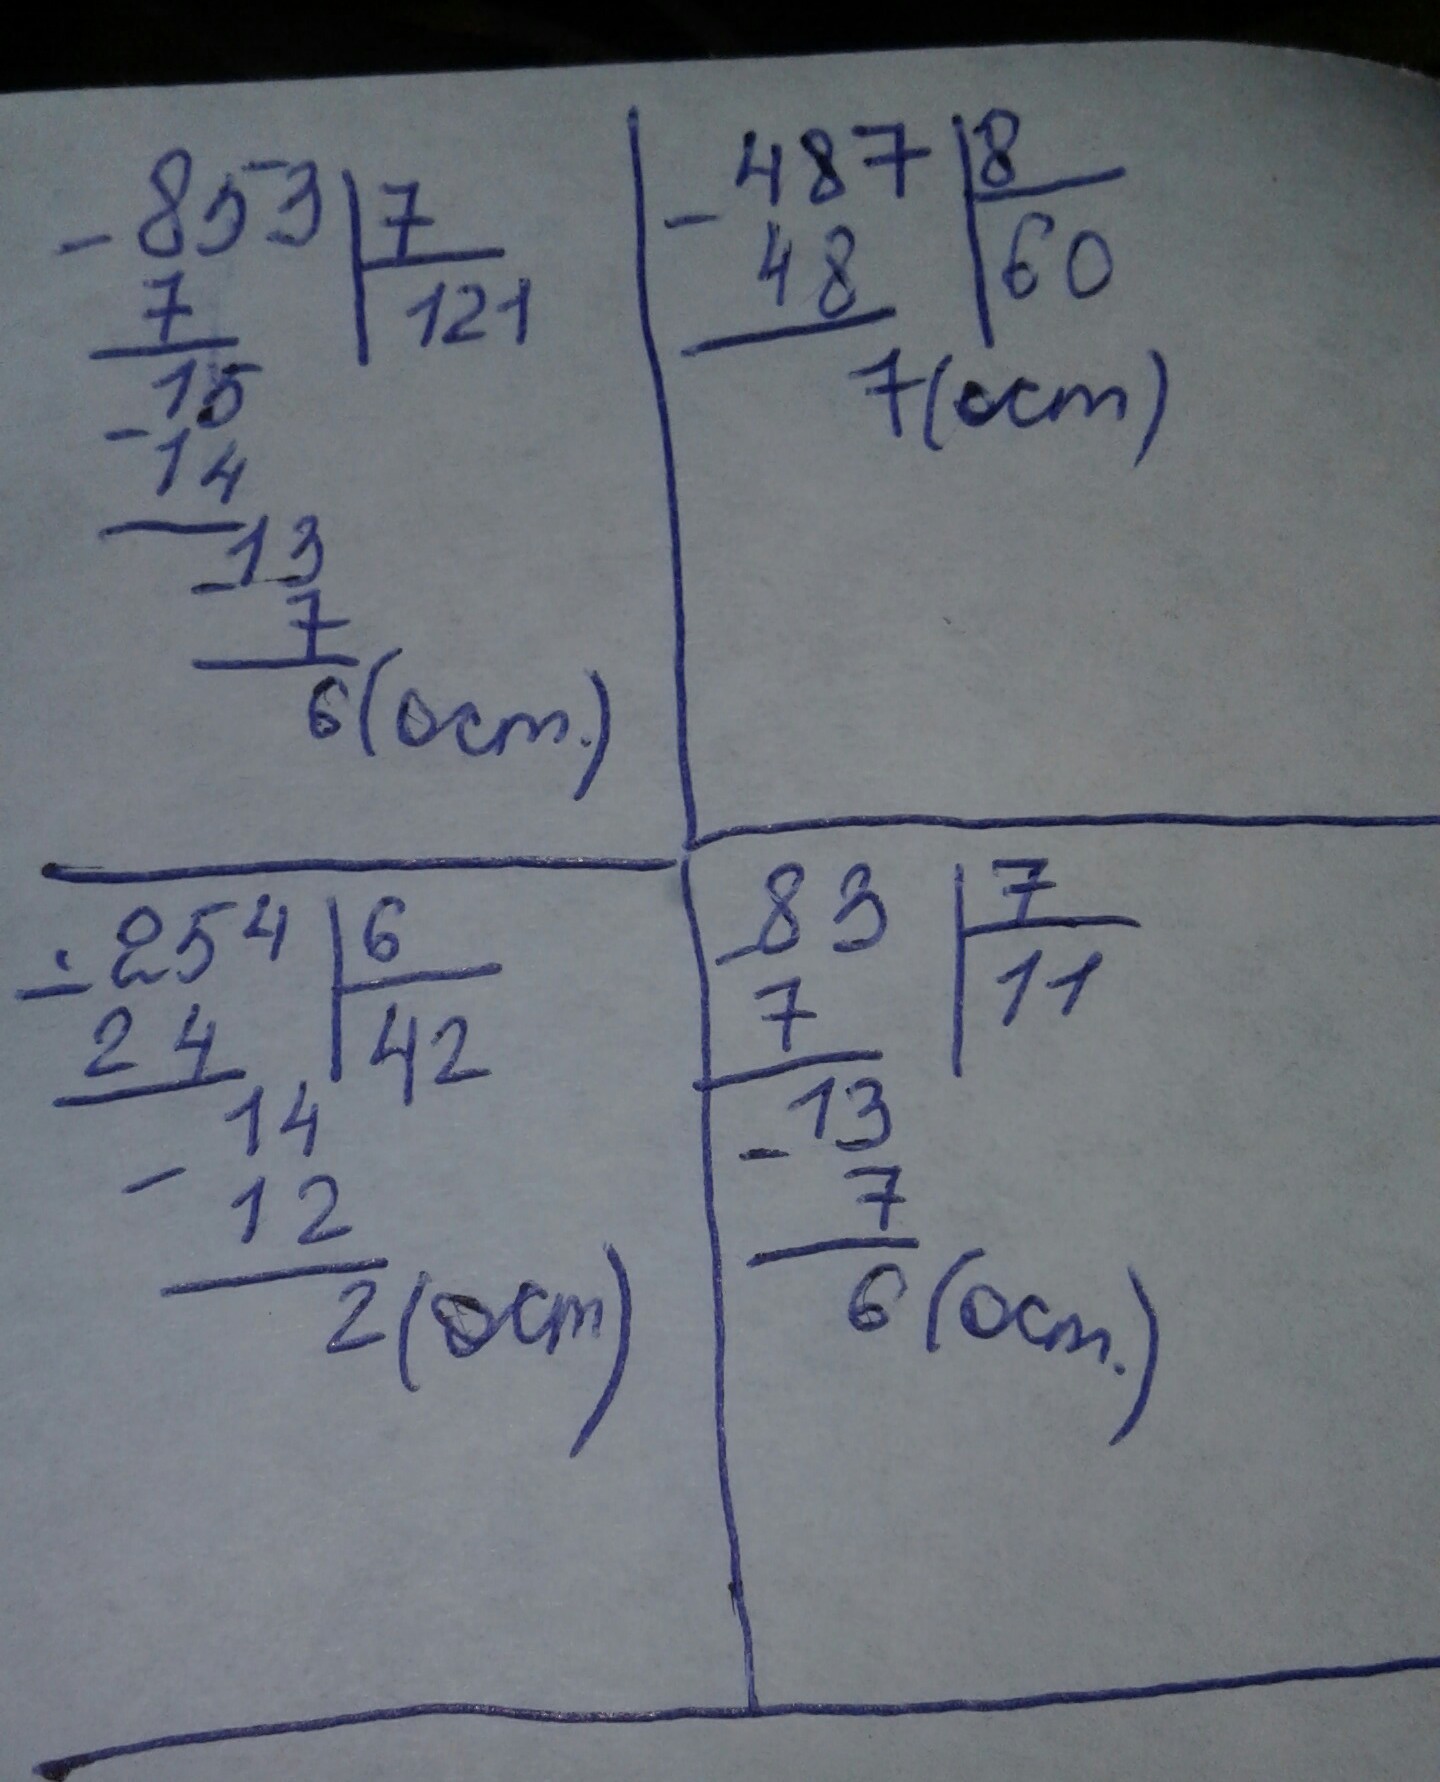 - 853 | 7
7 | 121
15
- 14
- 13
7
6 (ост.)
- 487 | 8
48 | 60
7 (ост)
- 254 | 6
24 | 42
14
- 12
2 (ост)
- 83 | 7
7 | 11
- 13
7
6 (ост.)